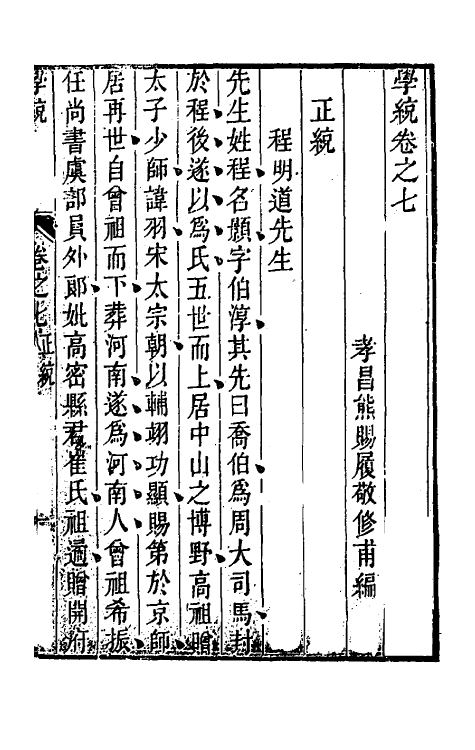 學統卷之七
孝昌熊賜履敬修甫編
正統
程明道先生
先生姓程名顥字伯淳其先曰喬伯爲周大司馬封
於程後遂以爲氏五世而上居中山之博野高祖贈
太子少師諱羽宋太宗朝以輔翊功顯賜第於京師
居再世自曾祖而下葬河南遂爲河南人曾祖希振
任尚書虞部員外郎妣高密縣君崔氏祖遹贈開府
學統
卷之七正統
一